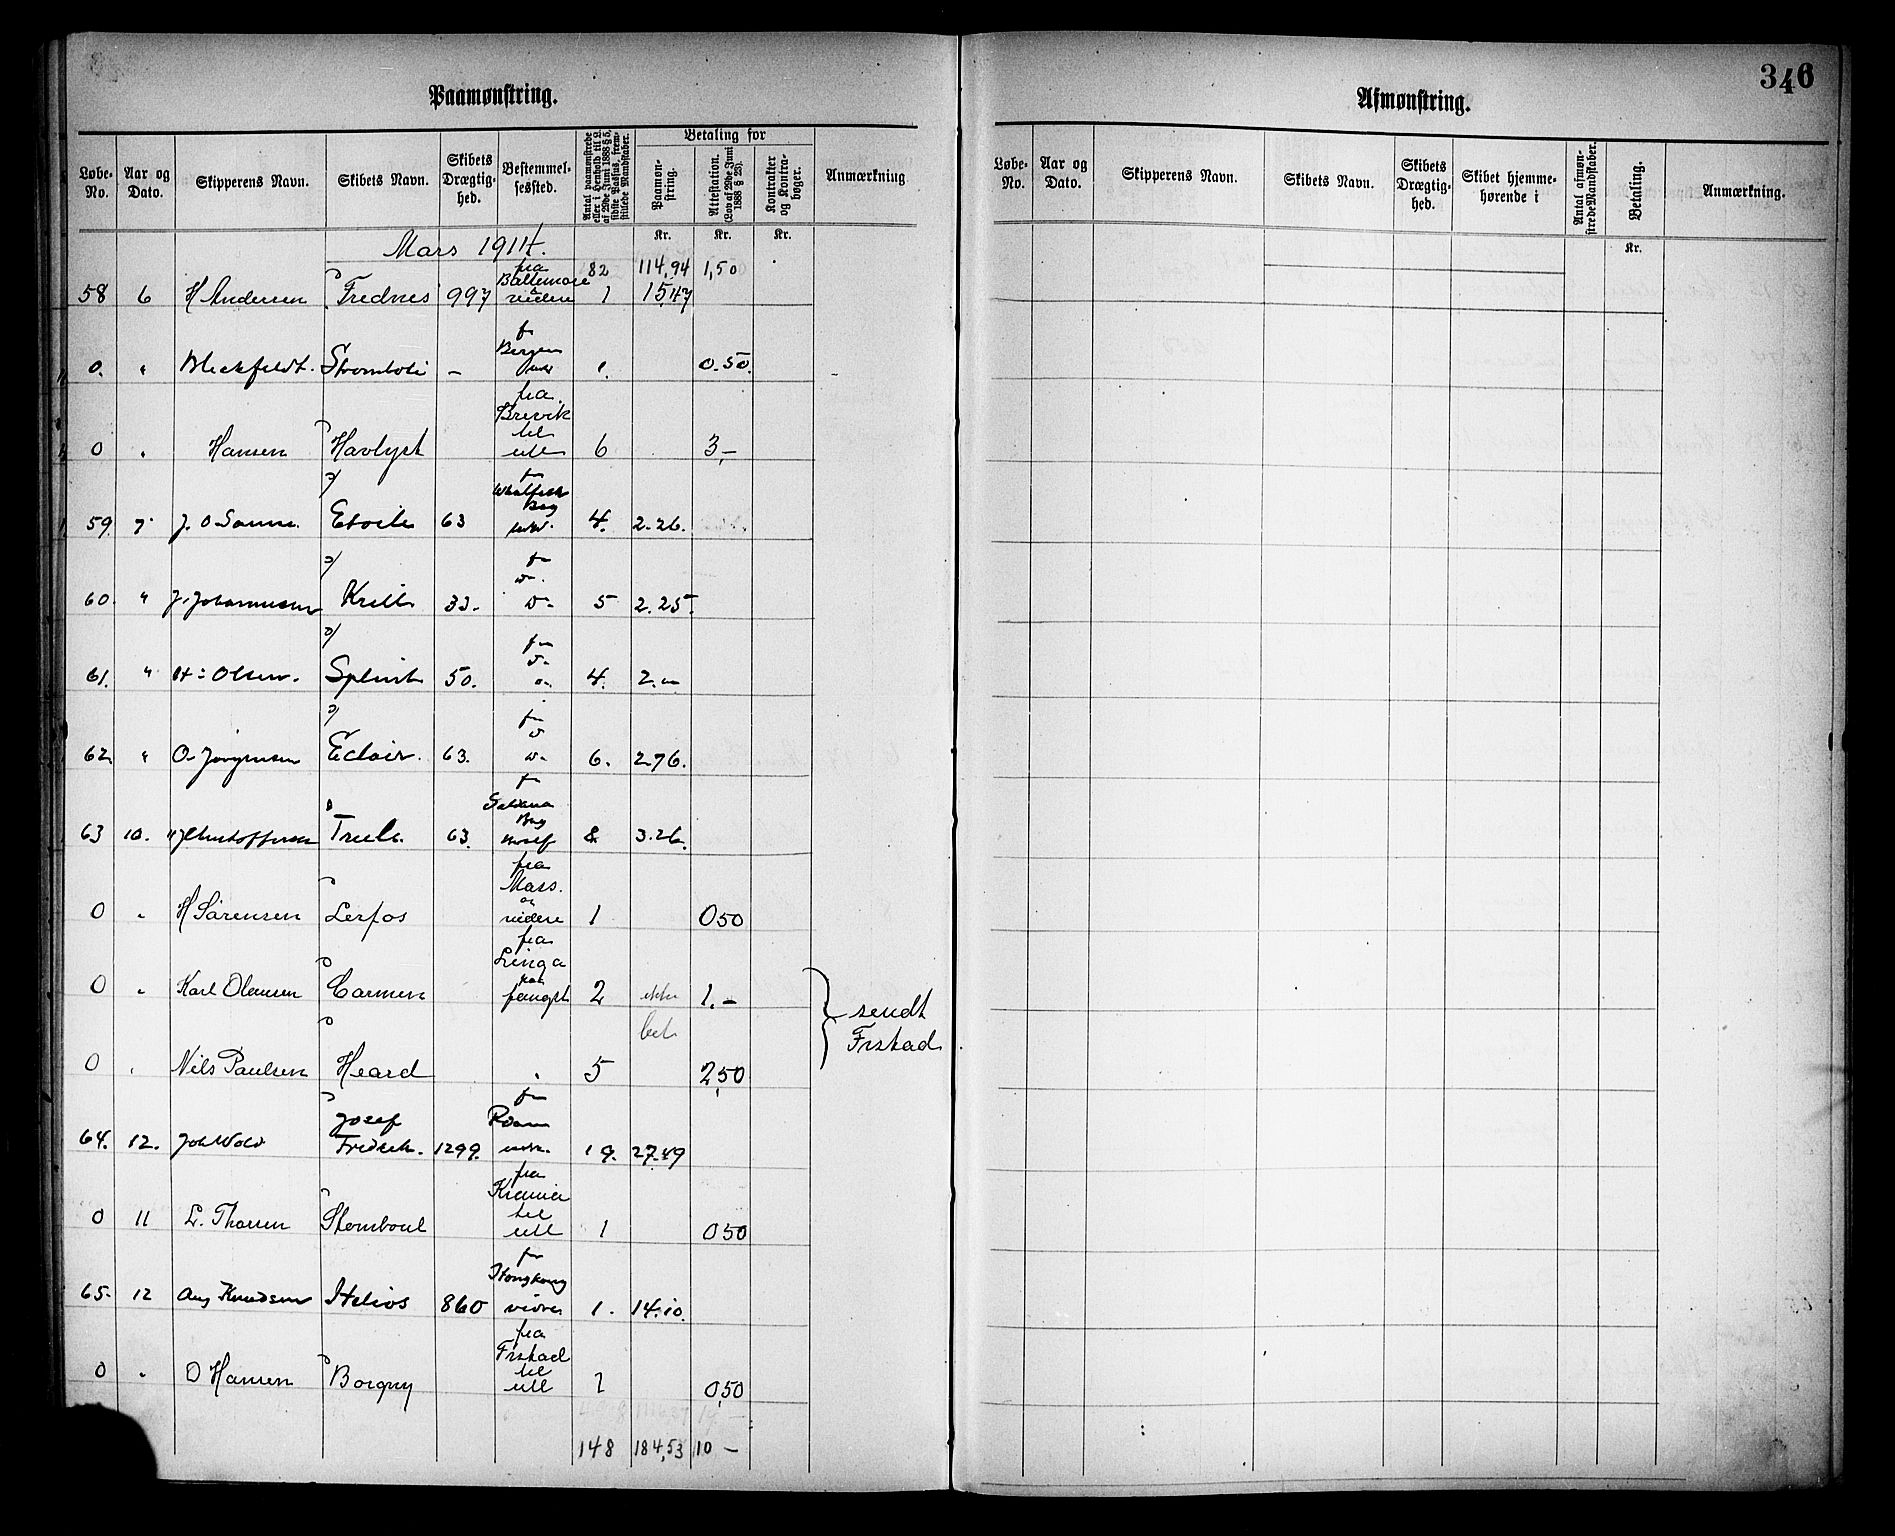 Paamønstring.
Løbe-No. Aar og Dato. Skipperens Navn. Skibets Navn. Skibets Drægtig-hed. Bestemmel-sessted. Antal paamønstrede eller i Henhold til L. af 29de Juni 1888 § 5, sidste Passus, frem-stillede Mandskaber. Betaling for Paamøn-string. Attestation. (Lov af 29de Juni 1888 § 25). Kontrakter og Kontra-bøger. Anmærkning
Kr. Kr. Kr.
Mars 1914.
82 114,94 1,50
58 6 H Andersen Frednes 997 fra Baltimore videre 1 15,47
0. " Bleckfeldt. Stromboli – fr Bergen 1. 0.50.
0 " Hansen Havlyst fra Brevik til utl 6 3,–
59. 7. Etoile 63 fr Walfisch Bay 4. 2.26.
60. " J. Johannessen Krill 33. fr do. do 5 2.25.
61. " H: Olsen. Splint 50. fr do 4. 2.–
62. " O. Jørgensen Eclair. 63. fr do do 6. 2.76.
63 10. Christoffersen Truls. 63. fr Saldana Bay 8. 3.26.
0 " H Sørensen Lerfos fra Mass. og videre 1 0 50
0 " Karl Olausen Carmen fra Linga paa fangst 2 ikke bet 1.–
0 " Nils Paulsen Heard " 5 2,50
} sendt Frstad
64. 12. Joh Wold Josef Fredrik. 1299. fr 19. 27.49
0 11 L. Thorsen Stamboul fra Krania til utl 1 0 50
65. 12 Aug Knudsen Helios 860 fr Hongkong vidre 1. 14.10.
0 " O Hansen Borgny fra Frstad til utl 1 0,50
148 184,53 10 –
Afmønstring.
346
Løbe-No. Aar og Dato. Skipperens Navn. Skibets Navn. Skibets Drægtig-hed. Skibet hjemme-hørende i Antal afmøn-strede Mandskaber. Betaling. Anmærkning.
Kr.